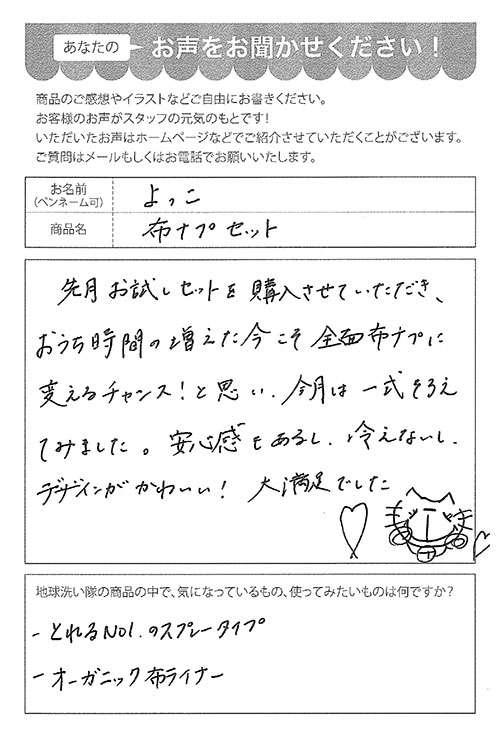 あなたの お声をお聞かせください！
商品のご感想やイラストなどご自由にお書きください。
お客様のお声がスタッフの元気のもとです！
いただいたお声はホームページなどでご紹介させていただくことがございます。
ご質問はメールもしくはお電話でお願いいたします。
お名前
(ペンネーム可)
よっこ
商品名
布ナプセット
先月お試しセットを購入させていただき、
おうち時間の増えた今こそ全面布ナプに
変えるチャンス！と思い、今月は一式そろえ
てみました。安心感もあるし、冷えないし、
デザインがかわいい！大満足でした
地球洗い隊の商品の中で、気になっているもの、使ってみたいものは何ですか？
- とれるNO1.のスプレータイプ
- オーガニック布ライナー